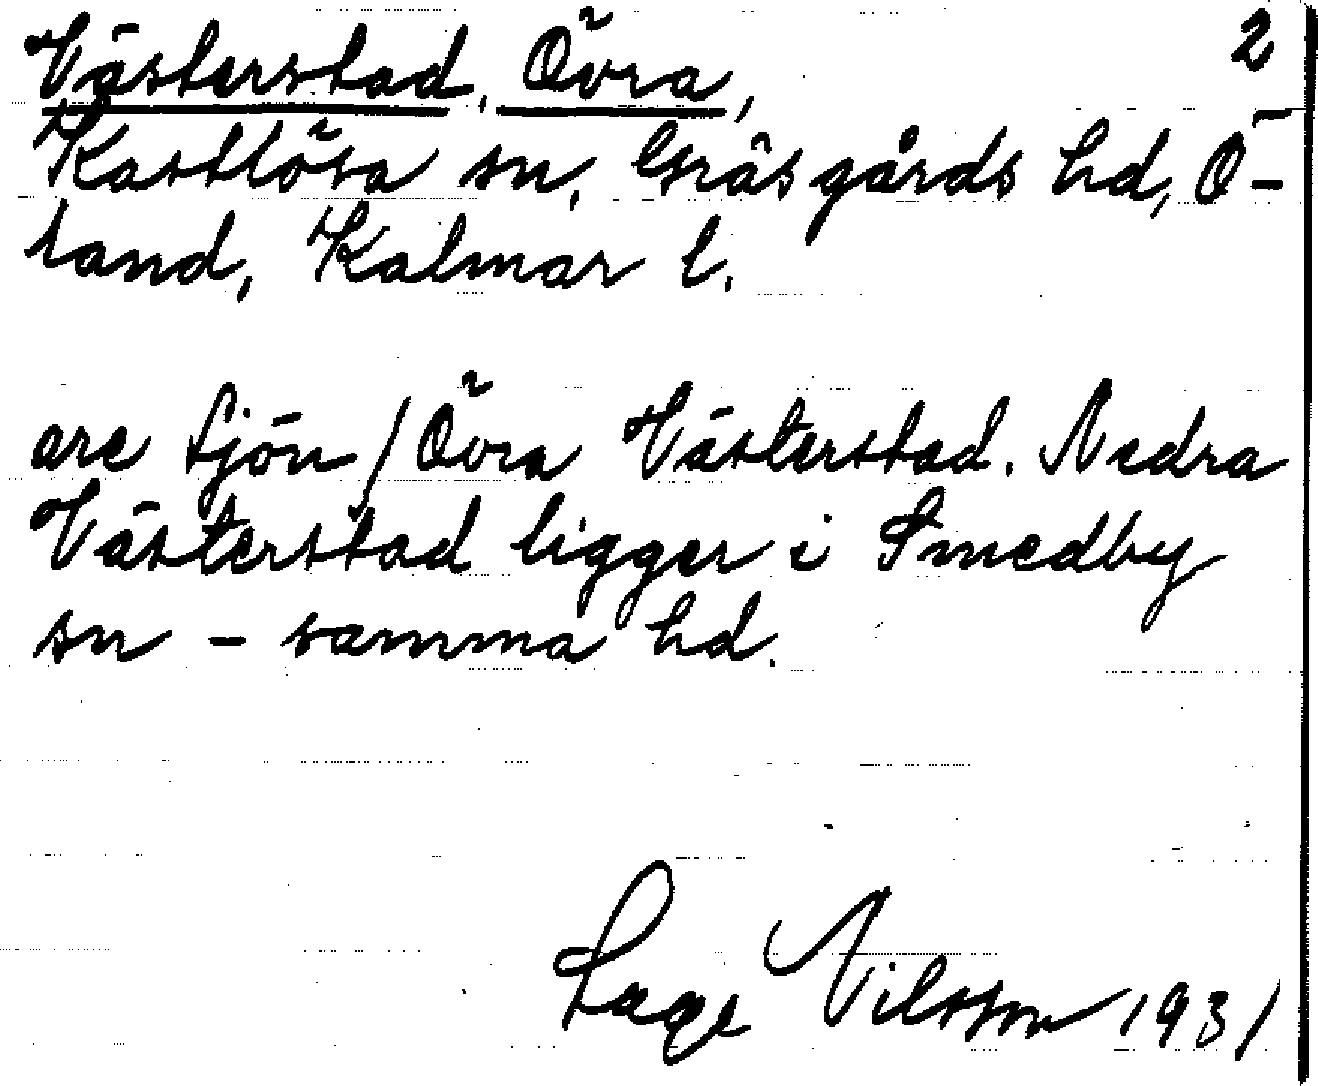 Västerstad, Övra, 2
Kastlösa sn, Gräsgårds hd, Ö-
land, Kalmar l.
are sjön / Övra Västerstad. Nedra
Västerstad ligger i Smedby
sn - samma hd.
Lage Nilsson 1931